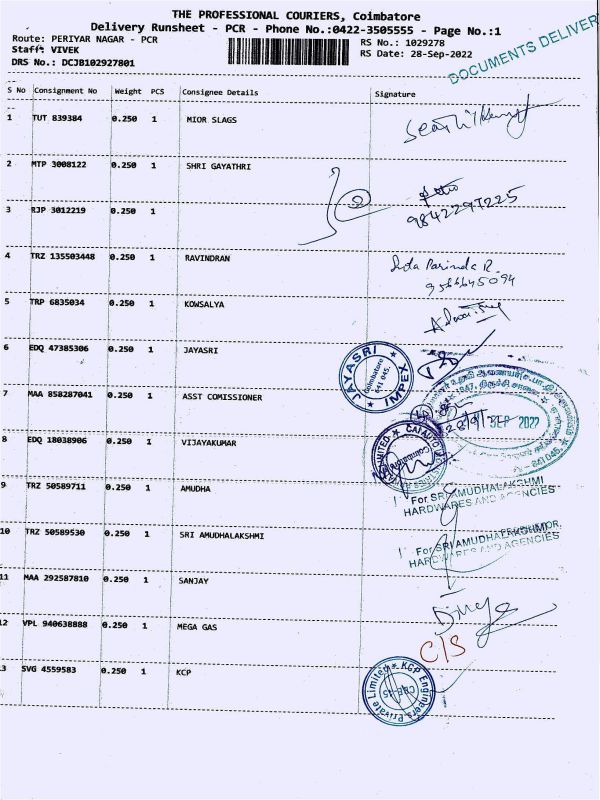 THE PROFESSIONAL COURIERS, Coimbatore
Delivery Runsheet - PCR - Phone No.:0422-3505555 - Page No.:1
Route: PERIYAR NAGAR - PCR
RS No.: 1029278
Staff: VIVEK
RS Date: 28-Sep-2022
DRS No.: DCJB102927801
DOCUMENTS DELIVER
S No Consignment No Weight PCS Consignee Details Signature
1 TUT 839384 0.250 1 MIOR SLAGS
2 MTP 3008122 0.250 1 SHRI GAYATHRI
9842297225
3 RJP 3012219 0.250 1
4 TRZ 135503448 0.250 1 RAVINDRAN
9566645094
5 TRP 6835034 0.250 1 KOWSALYA
6 EDQ 47385306 0.250 1 JAYASRI
JAYASRI IMPEX
Coimbatore
641 045.
7 MAA 858287041 0.250 1 ASST COMISSIONER
SEP 2022
641 045.
8 EDQ 18038906 0.250 1 VIJAYAKUMAR
Coimbatore
9 TRZ 50589711 0.250 1 AMUDHA
For SRI AMUDHALAKSHMI
HARDWARES AND AGENCIES
10 TRZ 50589530 0.250 1 SRI AMUDHALAKSHMI
For SRI AMUDHALAKSHMI
HARDWARES AND AGENCIES
11 MAA 292587810 0.250 1 SANJAY
12 VPL 940638888 0.250 1 MEGA GAS
C/S
13 SVG 4559583 0.250 1 KCP
KCP Engineers Private Limited
CBE-45